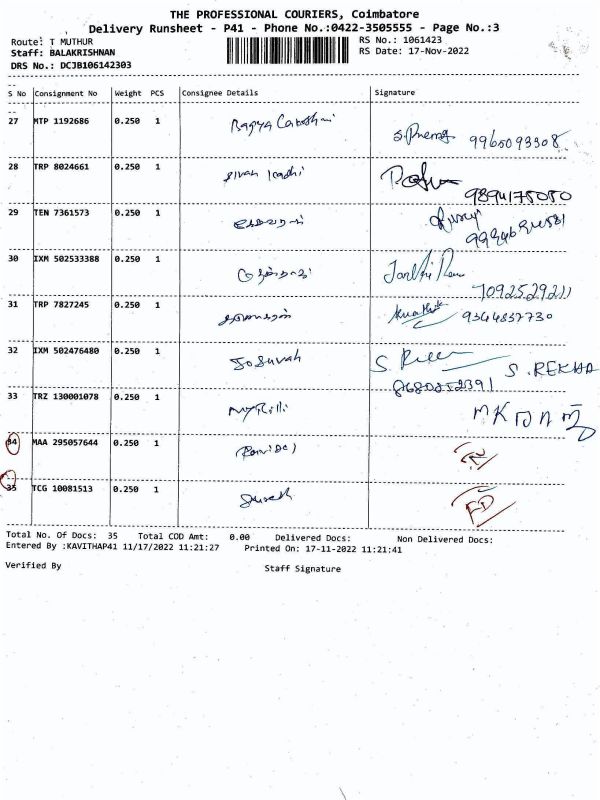 THE PROFESSIONAL COURIERS, Coimbatore
Delivery Runsheet - P41 - Phone No.:0422-3505555 - Page No.:3
Route: T MUTHUR RS No.: 1061423
Staff: BALAKRISHNAN RS Date: 17-Nov-2022
DRS No.: DCJB106142303
S No Consignment No Weight PCS Consignee Details Signature
27 MTP 1192686 0.250 1
9965093308
28 TRP 8024661 0.250 1
9894175050
29 TEN 7361573 0.250 1
30 IXM 502533388 0.250 1
7092529211
31 TRP 7827245 0.250 1
9344837730
32 IXM 502476480 0.250 1 Josuvah
S. REKHA
33 TRZ 130001078 0.250 1
34 MAA 295057644 0.250 1
35 TCG 10081513 0.250 1 Suresh FD
Total No. Of Docs: 35 Total COD Amt: 0.00 Delivered Docs: Non Delivered Docs:
Entered By :KAVITHAP41 11/17/2022 11:21:27 Printed On: 17-11-2022 11:21:41
Verified By Staff Signature